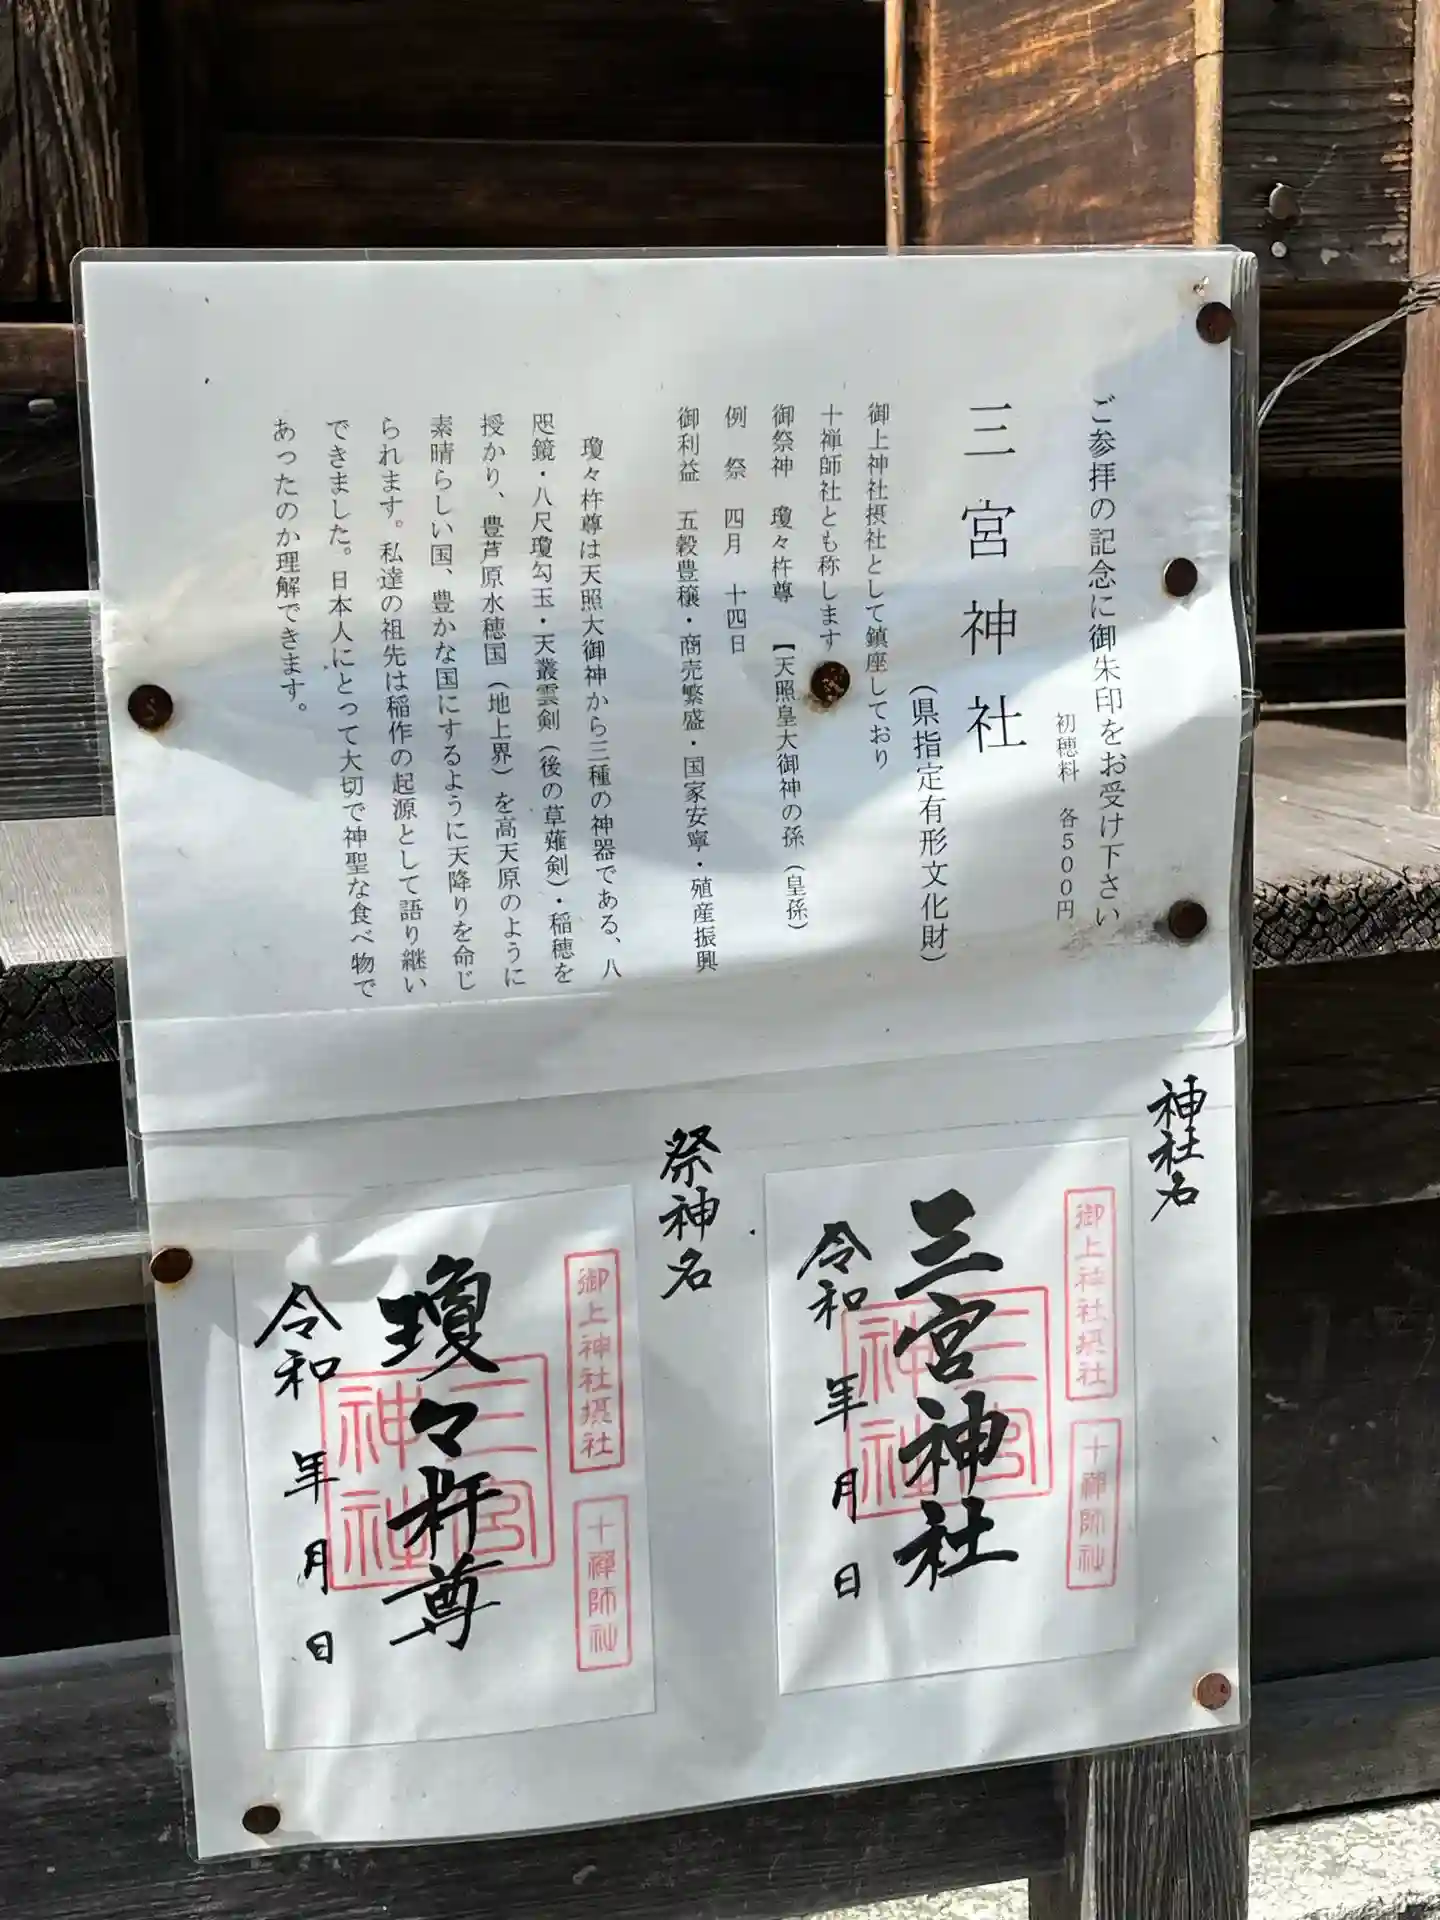 ご参拝の記念に御朱印をお受け下さい
初穂料　各５００円
三宮神社
（県指定有形文化財）
御上神社摂社として鎮座しており
十禅師社とも称します
御祭神　瓊々杵尊　【天照皇大御神の孫（皇孫）
例　祭　四月　十四日
御利益　五穀豊穣・商売繁盛・国家安寧・殖産振興
瓊々杵尊は天照大御神から三種の神器である、八
咫鏡・八尺瓊勾玉・天叢雲剣（後の草薙剣）・稲穂を
授かり、豊芦原水穂国（地上界）を高天原のように
素晴らしい国、豊かな国にするように天降りを命じ
られます。私達の祖先は稲作の起源として語り継い
できました。日本人にとって大切で神聖な食べ物で
あったのか理解できます。
神社名
御上神社摂社
十禅師社
三宮神社
三宮
神社
令和　年　月　日
祭神名
御上神社摂社
十禅師社
瓊々杵尊
三宮
神社
令和　年　月　日